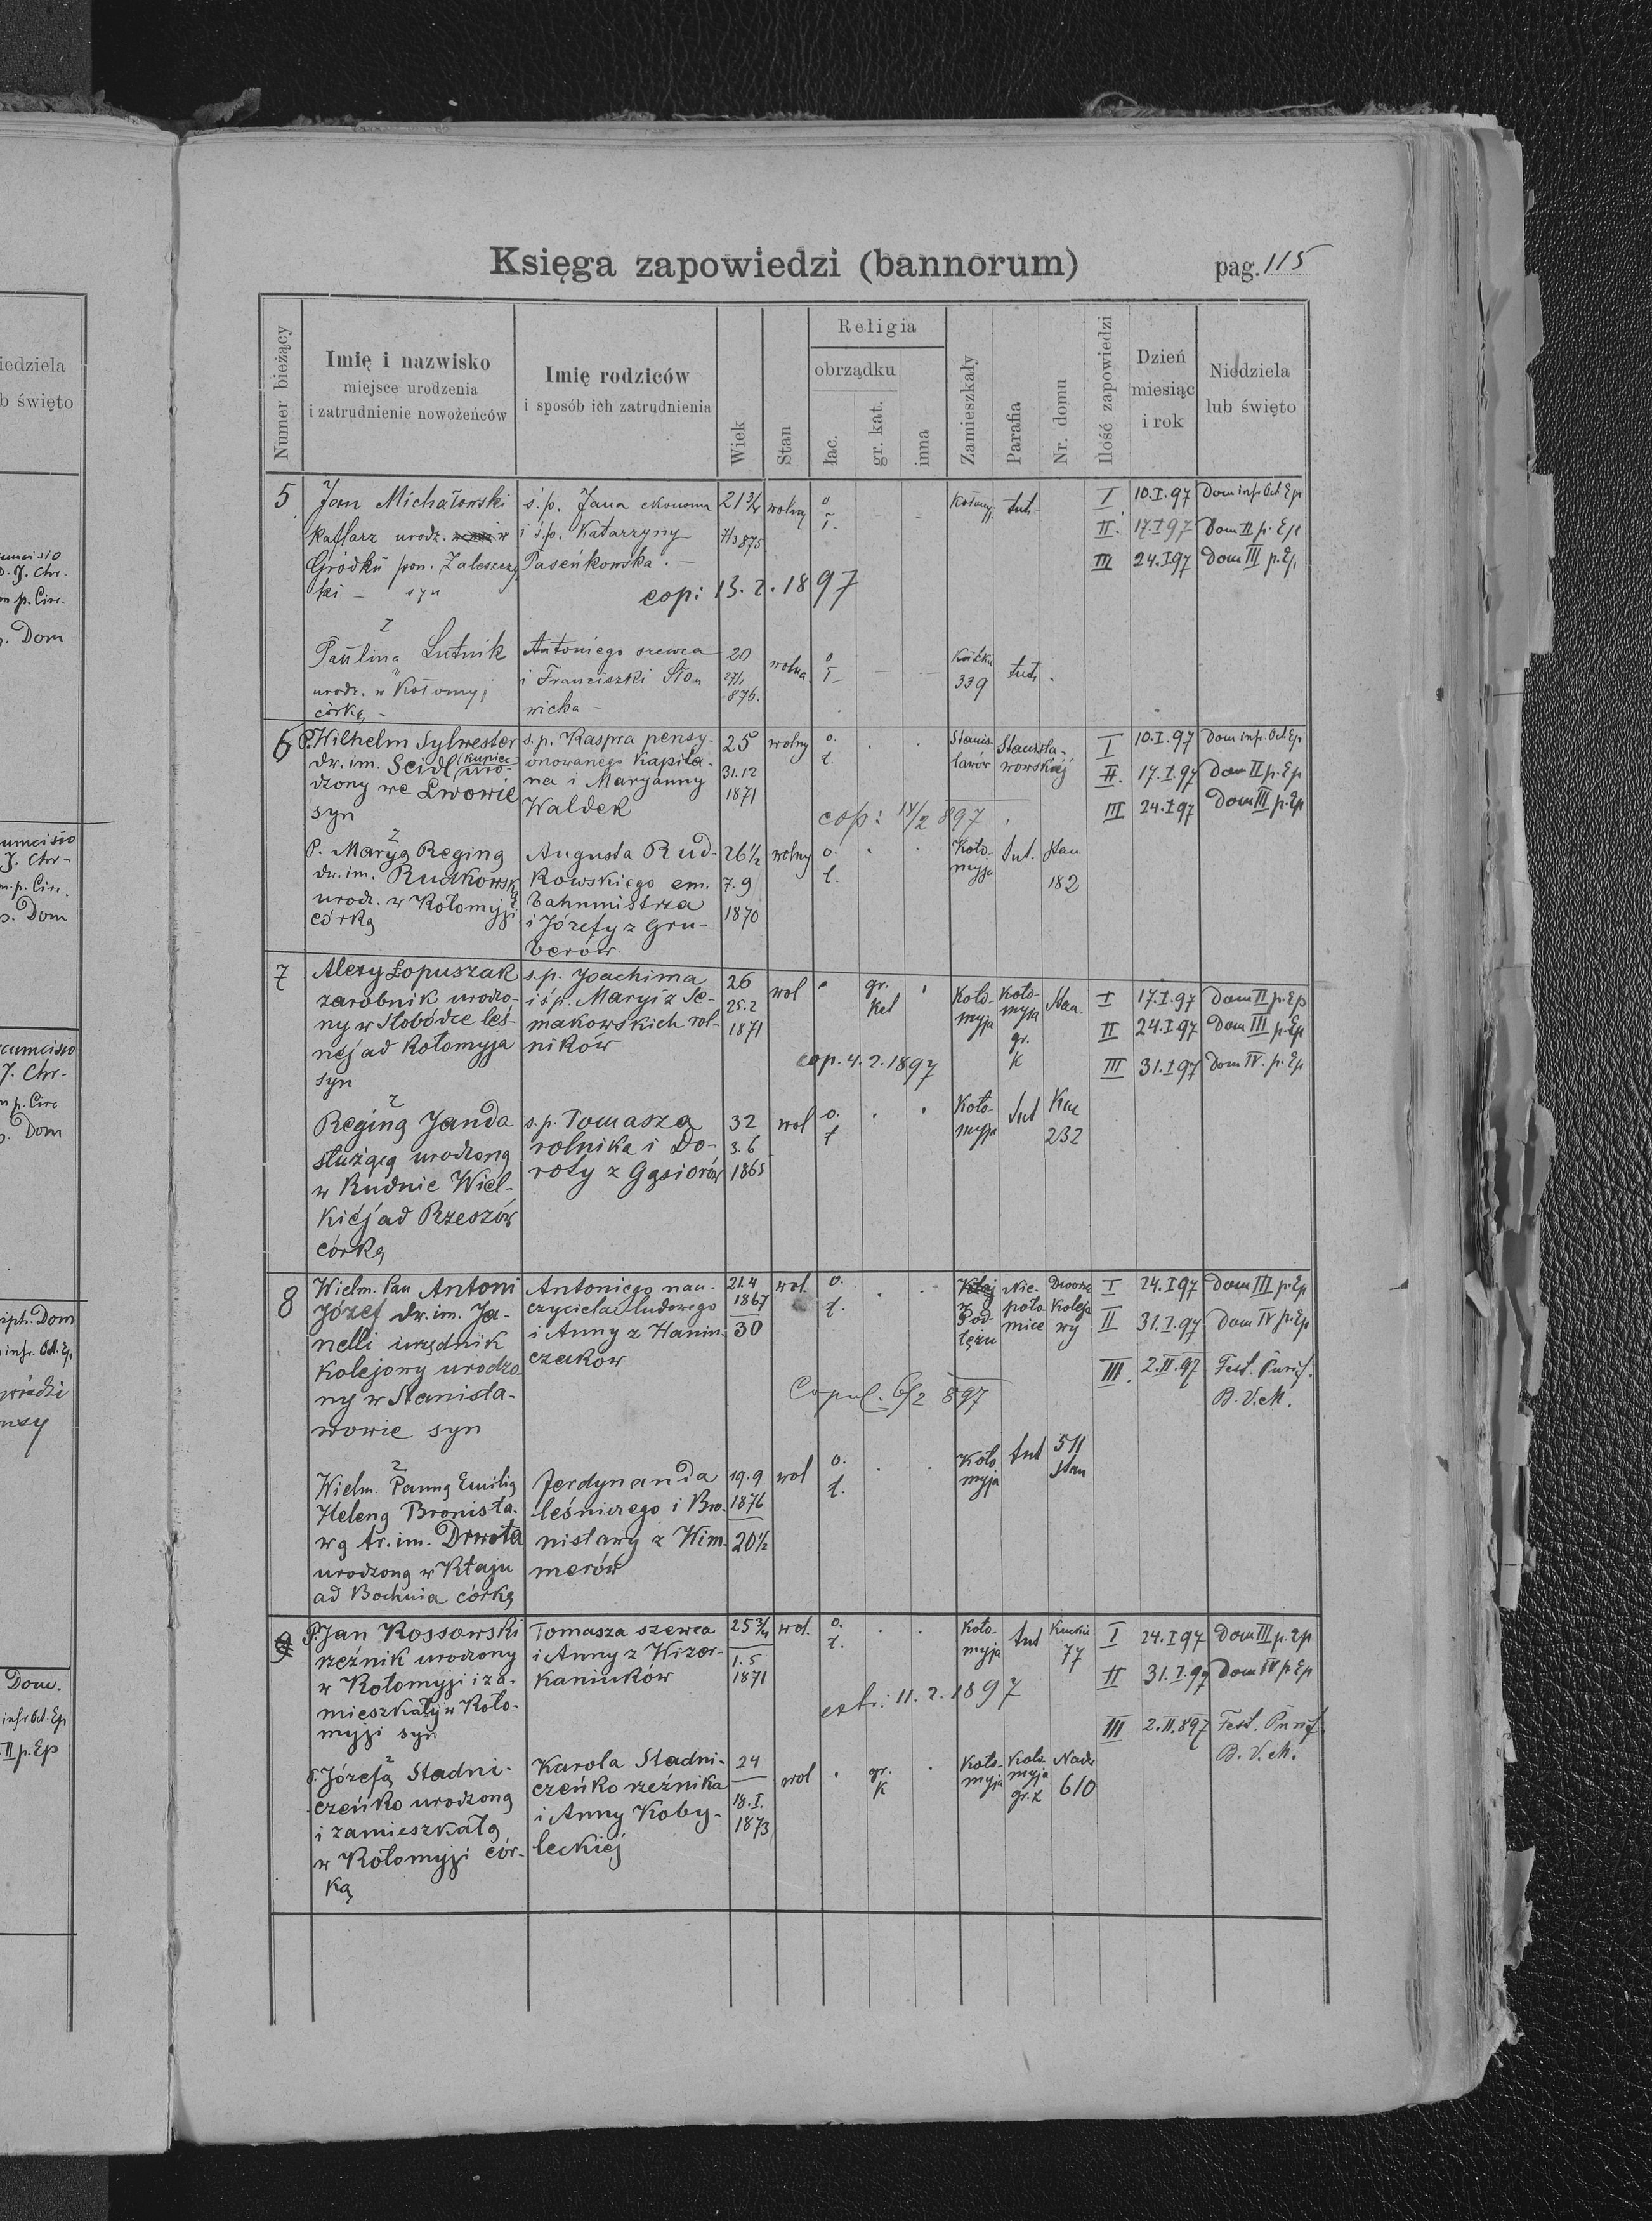 Księga zapowiedzi (bannorum)
pag. 115
Numer bieżący
Imię i nazwisko
miejsce urodzenia
i zatrudnienie nowożeńców
Imię rodziców
i sposób ich zatrudnienia
Wiek
Stan
Religia
obrządku
łac.
gr. kat.
inna
Zamieszkały
Parafia
Nr. domu
Ilość zapowiedzi
Dzień
miesiąc
i rok
Niedziela
lub święto
5
Jan Michałowski
kaflarz urodz. w
Gródku pow. Zaleszczy
ki - syn
ś.p. Jana ekonoma
i ś.p. Katarzyny
Paseńkowska. -
21 3/4
7/3 875
wolny
o
ł.
Kołomyj.
tut.
I 10.I.97 Dom infr Oct Ep
II. 17.I.97 Dom II p. Ep
III 24.I.97 Dom III p. Ep.
cop: 13.2.1897
z
Paulina Lutnik
urodz. w Kołomyj
córką -
Antoniego szewca
i Franciszki Sło
wicka -
20
27/1
876.
wolna
o
ł
339
tut.
6
P. Wilhelm Sylwester
dw. im. Seidl kupiec uro-
dzony we Lwowie
syn
s.p. Kaspra pensy-
onowanego kapita-
na i Maryanny
Waldek
25
31.12
1871
wolny
o.
ł.
Stanis-
ławów
Stanisła-
wowskiej
I 10.I.97 Dom infr. Oct Ep
II. 17.I.97 Dom II p. Ep
III 24.I.97 Dom III p. Ep
cop: 14/2 897
z
P. Maryą Reginą
dw. im. Rudkowską
urodz. w Kołomyji
córką
Augusta Rud-
kowskiego em.
bahnmistrza
i Józefy z Gru-
berów
26 1/2
7.9
1870
wolny
o.
ł.
Koło-
myja
tut.
Stan
182
7
Alexy Łopuszak
zarobnik urodzo-
ny w Słobódce leś-
nej ad Kołomyja
syn
s.p. Joachima
i ś.p. Maryi z Se-
makowskich rol-
ników
26
25.2
1871
wol
gr.
Kat
Koło-
myja
Koło-
myja
gr.
k
Stan.
I 17.I.97 Dom II p. Ep
II 24.I.97 Dom III p. Ep
III 31.I.97 Dom IV. p. Ep
cop. 4.2.1897
z
Reginą Janda
służącą urodzoną
w Rudnie Wiel-
kiéj ad Rzeszów
córką
s.p. Tomasza
rolnika i Do-
roty z Gąsiorów
32
3.6
1865
wol
o.
ł
Koło-
myja
tut
232
8
Wielm. Pan Antoni
Józef dw. im. Ja-
nelli urzędnik
kolejowy urodzo-
ny w Stanisła-
wowie syn
Antoniego nau-
czyciela ludowego
i Anny z Hanin-
czaków
21.4
1867
30
wol.
o.
ł.
Kłaj
Nie-
poło-
mice
Dworzec
kolejo
wy
I 24.I.97 Dom III p. Ep
II 31.I.97 Dom IV p. Ep
III. 2.II.97 Fest. Purif.
B.V.M.
Copul. 6/2 897
z
Wielm. Panną Emilią
Heleną Bronisła-
wą tr. im. Drwota
urodzoną w Kłaju
ad Bochnia córką
Ferdynanda
leśniczego i Bro-
nisławy z Wim-
merów
19.9
1876
20 1/2
wol
o.
ł.
Koło
myja
tut
511
Stan
9
P. Jan Kossowski
rzeźnik urodzony
w Kołomyji i za-
mieszkały w Koło-
myji syn
Tomasza szewca
i Anny z Wizer-
kaniuków
25 3/4
1.5
1871
wol.
o.
ł.
Koło-
myja
tut
77
I 24.I.97 Dom III p. Ep
II 31.I.97 Dom IV p Ep
III 2.II.897 Fest. Purif
B.V.M.
extr: 11.2.1897
z
P. Józefą Stadni-
czeńko urodzoną
i zamieszkałą
w Kołomyji cór-
ką
Karola Stadni-
czeńko rzeźnika
i Anny Koby-
leckiej
24
18.I.
1873
wol
gr.
k
Koło-
myja
Koło-
myja
gr. k
610